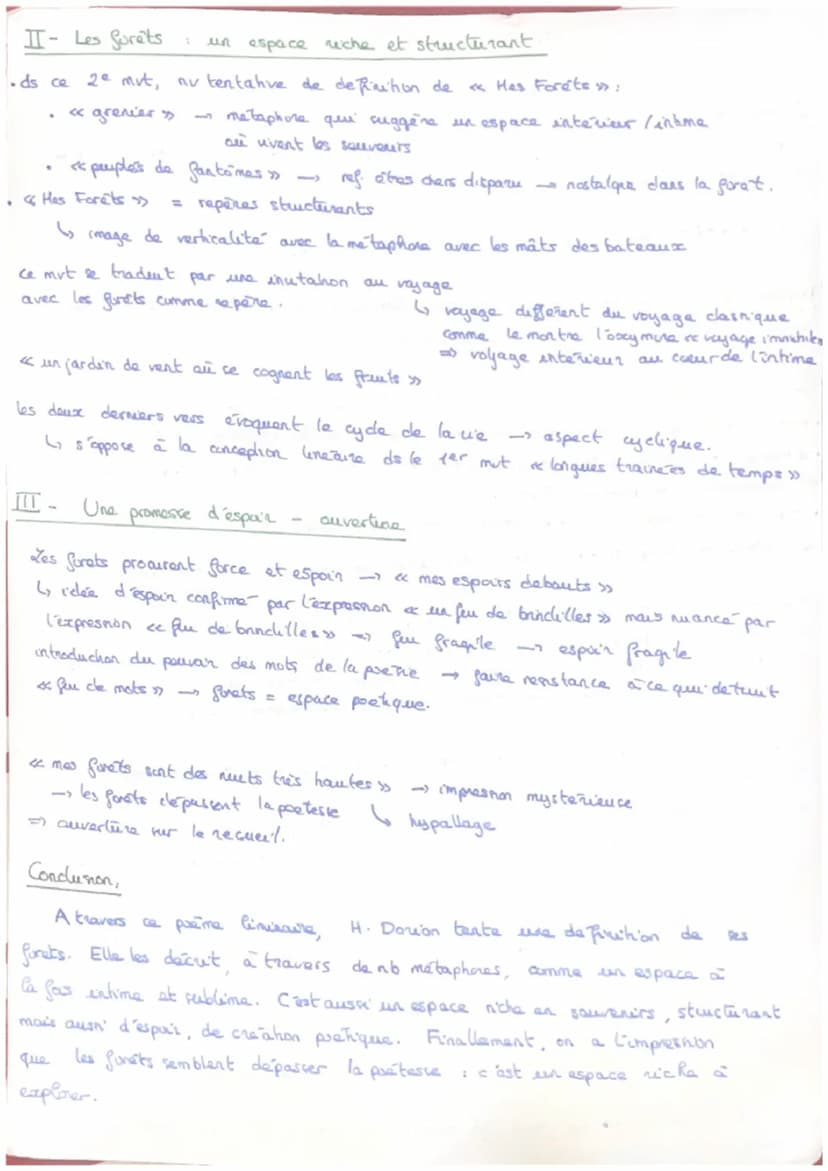 II - Les forêts : un espace riche et structurant
• ds ce 2e mvt, nv tentative de définition de « Mes Forêts » :
• « grenier » → métaphore qui suggère un espace intérieur / intime
où vivent les souvenirs
• « peuplés de fantômes » → ref. êtres chers disparu → nostalgie dans la forêt.
• « Mes Forêts » = repères structurants
↳ image de verticalité avec la métaphore avec les mâts des bateaux
ce mvt se traduit par une invitation au voyage
avec les forêts comme repère.
↳ voyage différent du voyage classique
comme le montre l'oxymore « voyage immobile
⇒ voyage intérieur au coeur de l'intime
« un jardin de vent où se cognent les fruits »
les deux derniers vers évoquent le cycle de la vie → aspect cyclique.
↳ s'oppose à la conception linéaire ds le 1er mvt « longues trainées de temps »
III - Une promesse d'espoir - ouverture
Les forêts procurent force et espoir → « mes espoirs debouts »
↳ idée d'espoir confirmé par l'expression « un feu de brindilles » mais nuancé par
l'expression « feu de brindilles » → feu fragile → espoir fragile
introduction du pouvoir des mots de la poésie → faire résistance à ce qui détruit
« feu de mots » → forêts = espace poétique.
« mes forêts sont des nuits très hautes » → impression mystérieuse
→ les forêts dépassent la poétesse ↳ hypallage
⇒ ouverture sur le recueil.
Conclusion,
A travers ce poème liminaire, H. Dorion tente une définition de ses
forêts. Elle les décrit, à travers de nb métaphores, comme un espace à
la fois intime et sublime. C'est aussi un espace riche en souvenirs, structurant
mais aussi d'espoir, de création poétique. Finallement, on a l'impression
que les forêts semblent dépasser la poétesse : c'est un espace riche à
explorer.